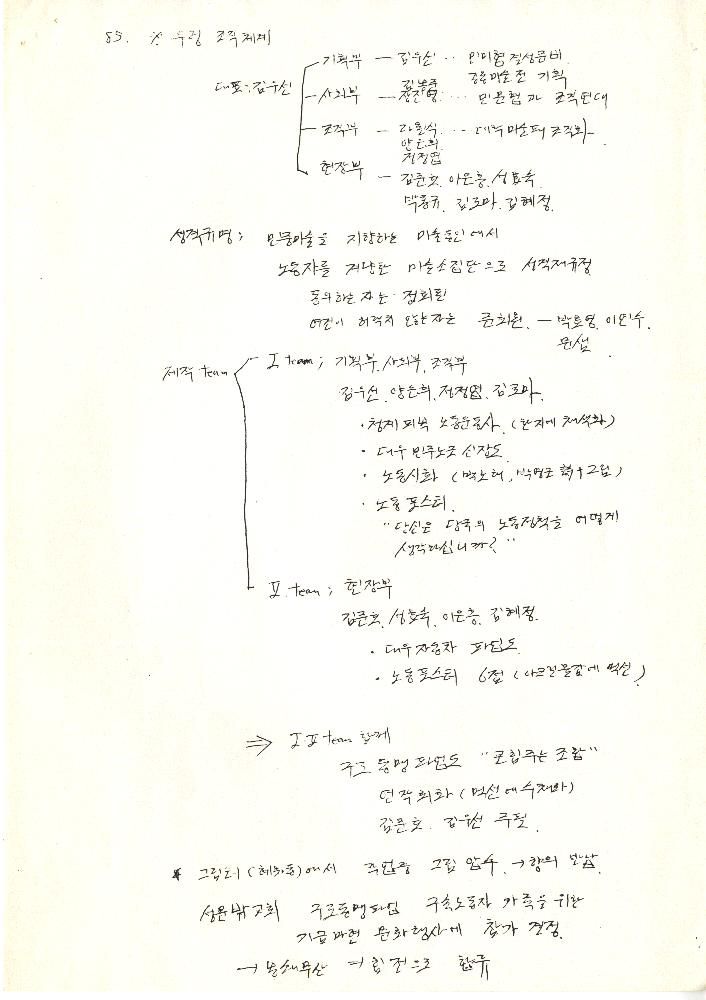 85. ※ 두렁 조직체제
대표: 김우선
기획부 — 김우선 ·· 민미협 결성준비
김우선 미술전 기획
사회부 — 정진영 ··· 민문협과 조직연대
조직부 — 라원식 ··· 대학미술패 조직화
양은희
정정엽
현장부 — 김준호, 이은홍, 성효숙
박홍규, 김로마, 김혜정.
성격규명; 민중미술을 지향하는 미술동인에서
노동자를 겨냥한 미술소집단으로 성격재규정
동의하는 자는 정회원
여건이 허락치 못한 자는 준회원. — 박흥영, 이인수,
제작 team
I team; 기획부, 사회부, 조직부
김우선, 양은희, 정정엽, 김로마.
· 청계피복 노동운동사. (한지에 채색화)
· 대우 민주노조 신장도.
· 노동시화 (박노해, 박영근 詩+그림)
· 노동포스터.
"당신은 당국의 노동정책을 어떻게
생각하십니까?"
II. team; 현장부
김준호, 성효숙, 이은홍, 김혜정.
· 대우자동차 파업도
· 노동포스터 6점 (아크릴물감에 먹선)
⇒ I II team 함께
구로동맹파업도 "
연작회화 (먹선에 수채화)
김준호, 김우선 주필.
* 그림터 (혜화동)에서 작업중 그림 압수. → 항의 반납
성문밖교회 구로동맹파업 구속노동자 가족을 위한
기금마련 문화행사에 참가 결정.
→ 봉쇄무산 ⇒ 힘전으로 합류